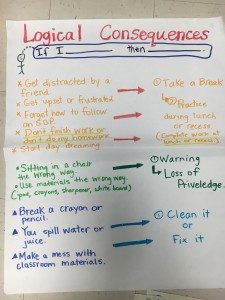 Logical Consequences
If I ________ then ________
* Get distracted by a friend.
* Get upset or frustrated
* Forget how to follow an S.O.P.
* Don't finish work or don't do my homework
* Start day dreaming
① Take a Break
② Practice during lunch or recess.
(Complete work at lunch or recess)
• Sitting in a chair the wrong way.
• Use materials the wrong way.
(ipad, crayons, sharpener, white board)
① Warning
↳ Loss of Priveledge.
▲ Break a crayon or pencil.
▲ You spill water or juice.
▲ Make a mess with classroom materials.
① Clean it or Fix it